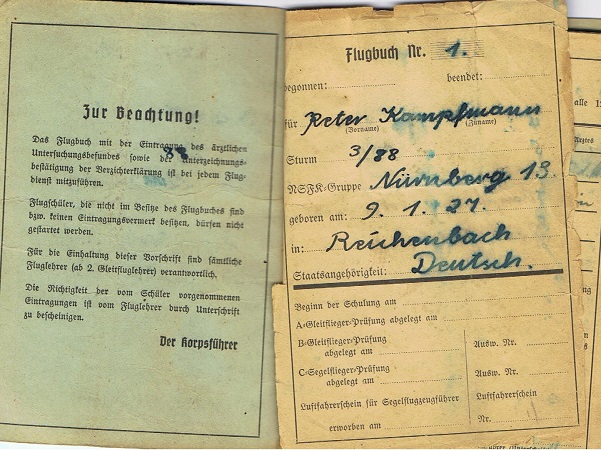 Zur Beachtung!
Das Flugbuch mit der Eintragung des ärztlichen
Untersuchungsbefundes sowie der Unterzeichnungs-
bestätigung der Verzichterklärung ist bei jedem Flug-
dienst mitzuführen.
Flugschüler, die nicht im Besitze des Flugbuches sind
bzw. keinen Eintragungsvermerk besitzen, dürfen nicht
gestartet werden.
Für die Einhaltung dieser Vorschrift sind sämtliche
Fluglehrer (ab 2. Gleitfluglehrer) verantwortlich.
Die Richtigkeit der vom Schüler vorgenommenen
Eintragungen ist vom Fluglehrer durch Unterschrift
zu bescheinigen.
Der Korpsführer
Flugbuch Nr. 1.
begonnen: beendet:
für Peter Kampfmann
(Vorname) (Zuname)
Sturm 3/88
NSFK-Gruppe Nürnberg 13.
geboren am: 9. 1. 27.
in: Reichenbach
Staatsangehörigkeit: Deutsch.
Beginn der Schulung am
A-Gleitflieger-Prüfung abgelegt am
B-Gleitflieger-Prüfung
abgelegt am Ausw. Nr.
C-Segelflieger-Prüfung
abgelegt am Ausw. Nr.
Luftfahrerschein für Segelflugzeugführer Luftfahrerschein
erworben am Nr.